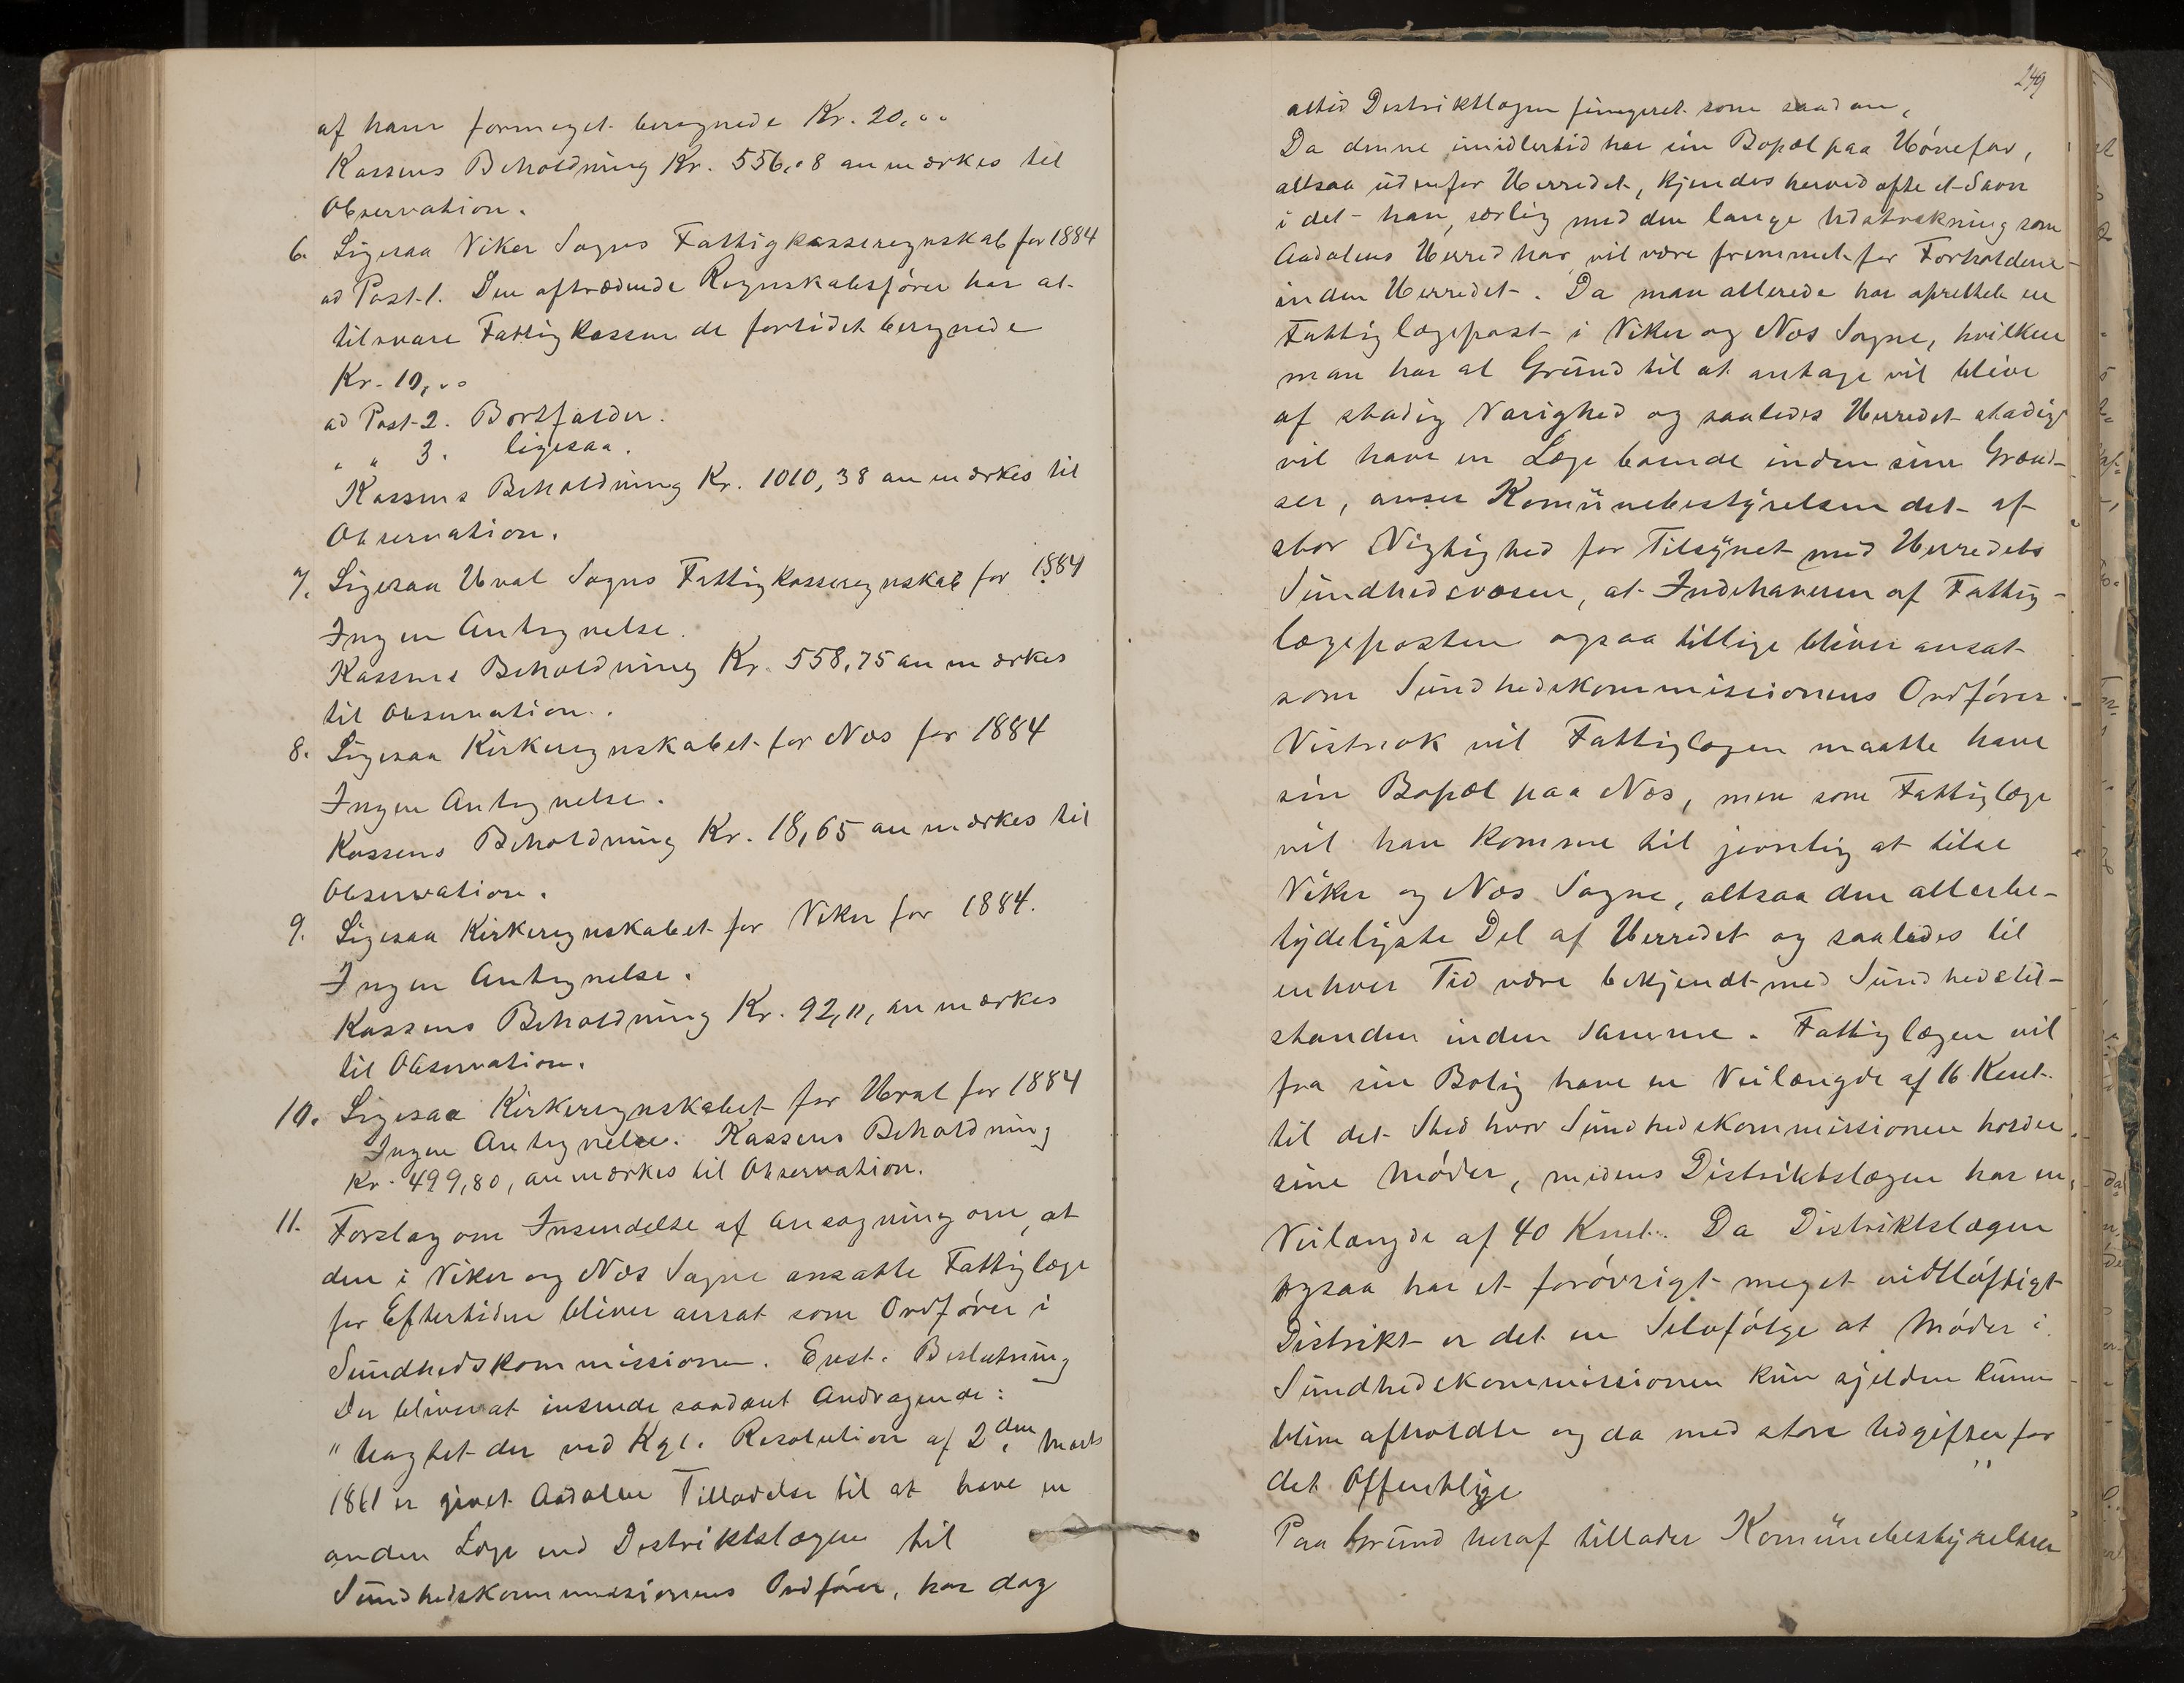 af ham formeget beregnede Kr. 20,00
Kassens Beholdning Kr. 556,08 anmærkes til
Observation.
6. Ligesaa Viker Sogns Fattigkasseregnskab for 1884
ad Post 1. Den aftrædende Regnskabsfører har at
tilsvare Fattigkassen de forlidet beregnede
Kr. 10,00
ad Post 2. Bortfalder.
" " 3. ligesaa.
Kassens Beholdning Kr. 1010,38 anmærkes til
Observation.
7. Ligesaa Hval Sogns Fattigkasseregnskab for 1884
Ingen Antegnelse.
Kassens Beholdning Kr. 558,75 anmærkes
til Observation.
8. Ligesaa Kirkeregnskabet for Næs for 1884
Ingen Antegnelse.
Kassens Beholdning Kr. 18,65 anmærkes til
Observation.
9. Ligesaa Kirkeregnskabet for Viker for 1884.
Ingen Antegnelse.
Kassens Beholdning Kr. 92,11, anmærkes
til Observation.
10. Ligesaa Kirkeregnskabet for Hval for 1884
Ingen Antegnelse. Kassens Beholdning
Kr. 499,80, anmærkes til Observation.
11. Forslag om Insendelse af Ansøgning om, at
den i Viker og Næs Sogne ansatte Fattiglæge
for Eftertiden bliver ansat som Ordfører i
Sundhedskommissionen. Enst. Beslutning
Der bliver at insende saadant Andragende:
" Uagtet der ved Kgl. Resolution af 2den Marts
1861 er givet Aadalen Tilladelse til at have en
anden Læge end Distriktslægen til
Sundhedskommissionens Ordfører, har dog
249
altid Distriktlægen fungeret som saadan,
Da denne imidlertid har sin Bopæl paa Hønefos,
altsaa udenfor Herredet, kjendes herved ofte et Savn
i det han, særlig med den lange Udstrækning som
Aadalens Herred har, vil være fremmed for Forholdene
inden Herredet. Da man allerede har oprettet en
Fattiglægepost i Viker og Næs Sogne, hvilken
man har al Grund til at antage vil blive
af stadig Varighed og saaledes Herredet stadig
vil have en Læge boende inden sine Grænd-
ser, anser Komunebestyrelsen det af
stor Vigtighed for Tilsynet med Herredets
Sundhedsvæsen, at Indehaveren af Fattig-
lægeposten ogsaa tillige bliver ansat
som Sundhedskommissionens Ordfører.
Vistnok vil Fattiglægen maatte have
sin Bopæl paa Næs, men som Fattiglæge
vil han komme til jevnlig at tilse
Viker og Næs Sogne, altsaa den allerbe-
tydeligste Del af Herredet og saaledes til
enhver Tid være bekjendt med Sundhedstil-
standen inden Samme. Fattiglægen vil
fra sin Bolig have en Veilængde af 16 Kmt.
til det Sted hvor Sundhedskommissionen holder
sine Møder, medens Distriktslægen har en
Veilængde af 40 Kmt. Da Distriktslægen
ogsaa har et forøvrigt meget vidtløftigt
Distrikt er det en Selvfølge at Møder i
Sundhedskommissionen kun sjelden kunne
blive afholdte og da med store Udgifter for
det Offentlige "
Paa Grund heraf tillader Komunebestyrelsen